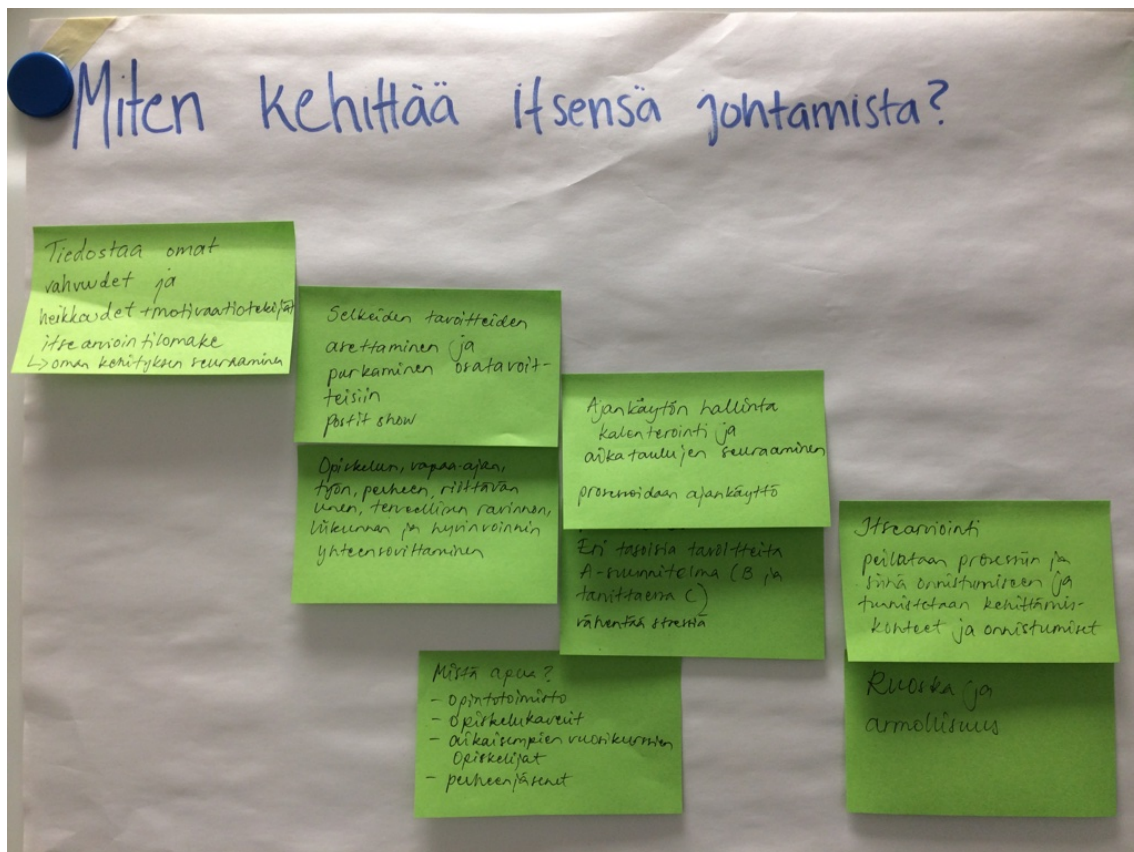 Miten kehittää itsensä johtamista?
Tiedostaa omat
vahvuudet ja
heikkoudet + motivaatiotekijät
itsearviointilomake
↳ oman kehityksen seuraaminen
Selkeiden tavoitteiden
asettaminen ja
purkaminen osatavoit-
teisiin
postit show
Opiskelun, vapaa-ajan,
työn, perheen, riittävän
unen, terveellisen ravinnon,
liikunnan ja hyvinvoinnin
yhteensovittaminen
Ajankäytön hallinta
kalenterointi ja
aikataulujen seuraaminen
prosessoidaan ajankäyttö
Eri tasoisia tavoitteita
A-suunnitelma (B ja
tarvittaessa C)
vähentää stressiä
Mistä apua?
- opintotoimisto
- opiskelukaverit
- aikaisempien vuosikurssien
opiskelijat
- perheenjäsenet
Itsearviointi
peilataan prosessiin ja
siinä onnistumiseen ja
tunnistetaan kehittämis-
kohteet ja onnistumiset
Ruoska ja
armollisuus